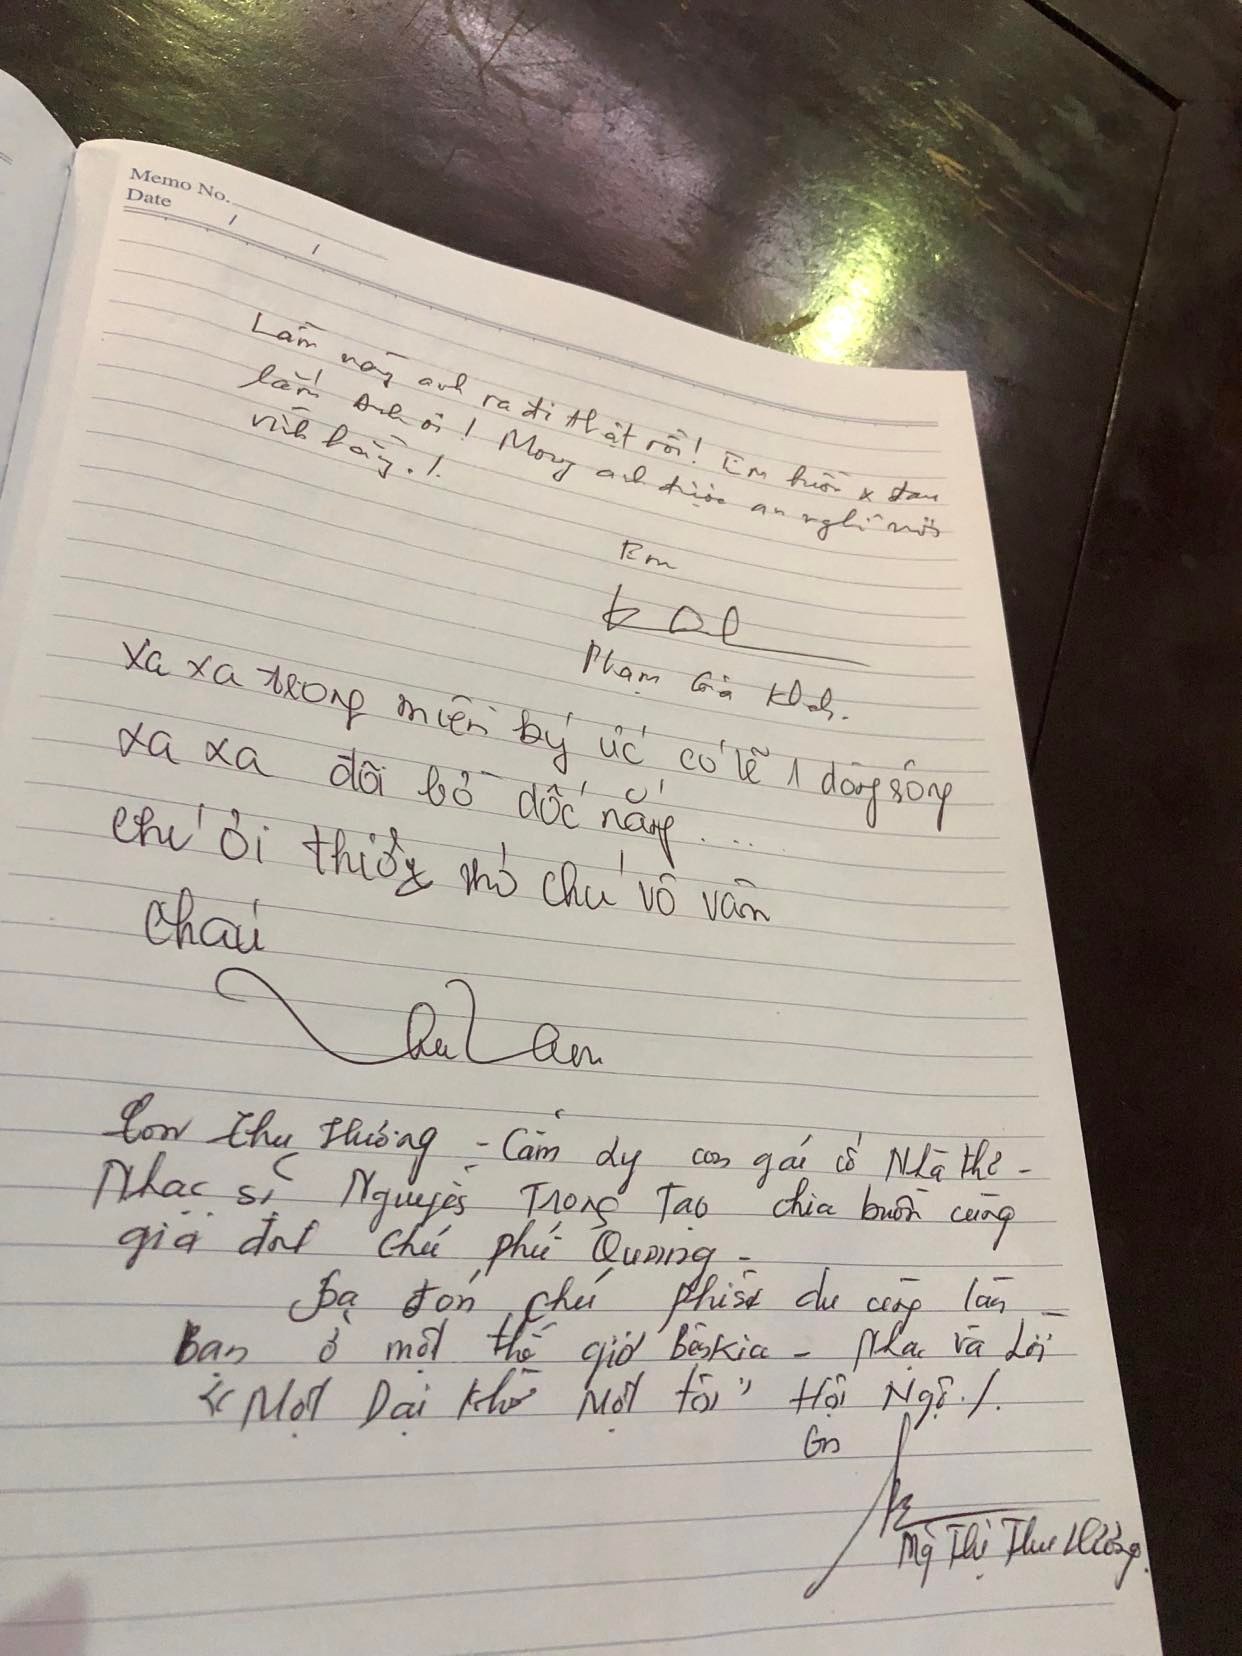 Memo No.
Date / /
Lần này anh ra đi thật rồi! Em buồn x đau
lắm Anh ơi! Mong anh được an nghỉ nơi
vĩnh hằng./.
Em
Phạm Gia Khánh.
Xa xa trong miền ký ức có lẽ 1 dòng sông
xa xa đôi bờ dốc nắng....
Chú ơi thương nhớ chú vô vàn
Cháu
Con Thu Hường - Cầm dy con gái cố Nhà thơ -
Nhạc sĩ Nguyễn Trọng Tạo chia buồn cùng
gia đình chú Phú Quang -
Ba đón chú phiêu du cùng lần
Ban ở một thế giới bên kia - Nhạc và Lời
"Một Dại Khờ Một tôi" Hội Ngộ./.
Con
Thị Thu Hường.